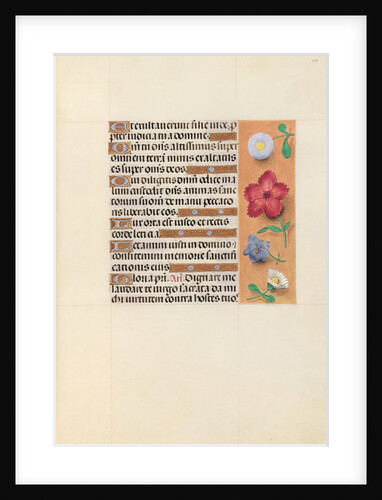 Et exultaverunt filie iude p
pter iudicia tua domine
Qm̄ tu dn̄s altissimus super
omnem terrā nimis exaltatus
es super omnes deos.
Qui diligitis domū odite ma
lum custodit dn̄s animas sanc
torum suorū de manu peccato
ris liberabit eos.
Lux orta est iusto et rectis
corde leticia.
Letamini iusti in domino et
confitemini memorie sanctifi
cationis eius.
Gloria pri. Añ. Dignare me
laudare te virgo sacrata da mi
chi virtutem contra hostes tuos